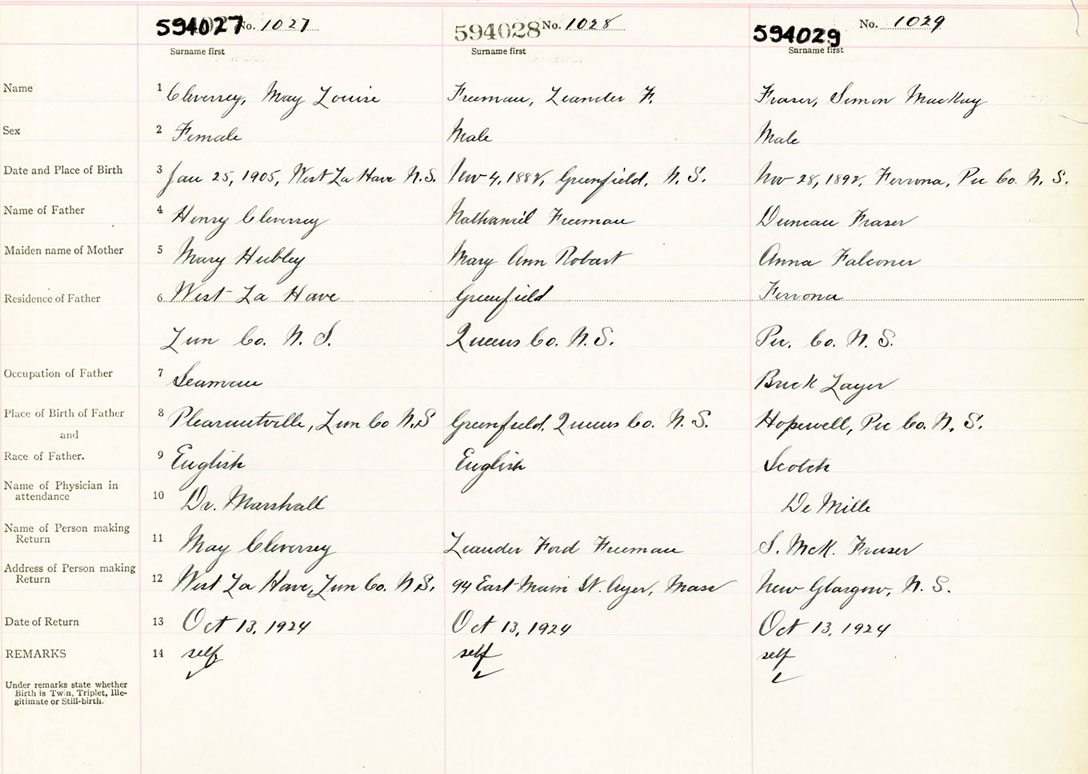 594027 No. 1027 594028 No. 1028 594029 No. 1029
Surname first Surname first Surname first
Name 1 Cleversey, May Louise Freeman, Leander F. Fraser, Simon MacKay
Sex 2 Female Male Male
Date and Place of Birth 3 Jan 25, 1905, West La Have N.S. Nov 4, Greenfield, N. S. Nov 28, 1892, Ferrona, Pic Co. N. S.
Name of Father 4 Henry Cleversey Nathaniel Freeman Duncan Fraser
Maiden name of Mother 5 Mary Hubley Mary Ann Robart Anna Falconer
Residence of Father 6 West La Have Greenfield Ferrona
Lun Co. N. S. Queens Co. N.S. Pic. Co. N. S.
Occupation of Father 7 Seaman Brick Layer
Place of Birth of Father 8 Pleasantville, Lun Co N.S Greenfield, Queens Co. N. S. Hopewell, Pic Co. N. S.
and
Race of Father. 9 English English Scotch
Name of Physician in
attendance 10 Dr. Marshall De Mille
Name of Person making
Return 11 May Cleversey Leander Ford Freeman S. McK. Fraser
Address of Person making
Return 12 West La Have, Lun Co. N.S. 94 East Main St. Ayer, Mass New Glasgow, N. S.
Date of Return 13 Oct 13, 1924 Oct 13, 1924 Oct 13, 1924
REMARKS 14 self self self
Under remarks state whether
Birth is Twin, Triplet, Ille-
gitimate or Still-birth.